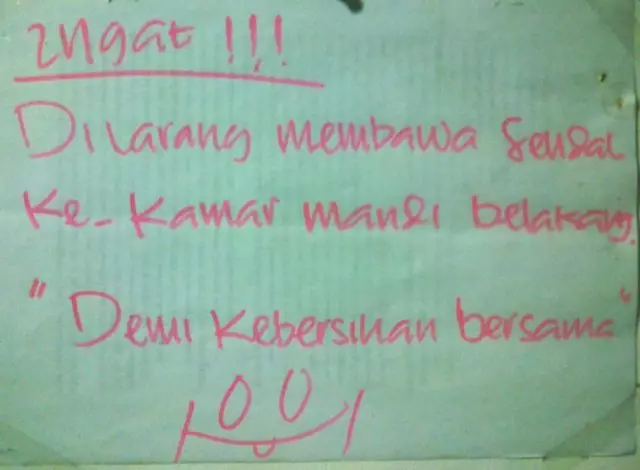 Ingat !!!
Dilarang membawa Sendal
Ke-Kamar mandi belakang.
"Demi Kebersihan bersama"